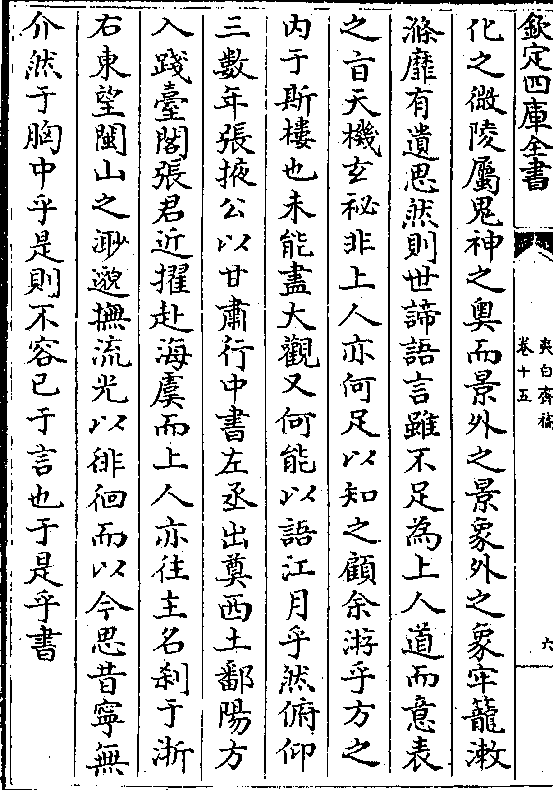 欽定四庫全書
夷白齋稿
卷十五
六
化之微陵屬鬼神之奥而景外之景象外之象牢籠漱
滌靡有遺思然則世諦語言雖不足為上人道而意表
之言天機玄祕非上人亦何足以知之顧余游乎方之
内于斯樓也未能盡大觀又何能以語江月乎然俯仰
三數年張掖公以甘肅行中書左丞出奠西土鄱陽方
入踐臺閣張君近擢赴海虞而上人亦往主名刹于浙
右東望閩山之渺邈撫流光以徘徊而以今思昔寧無
介然于胸中乎是則不容已于言也于是乎書